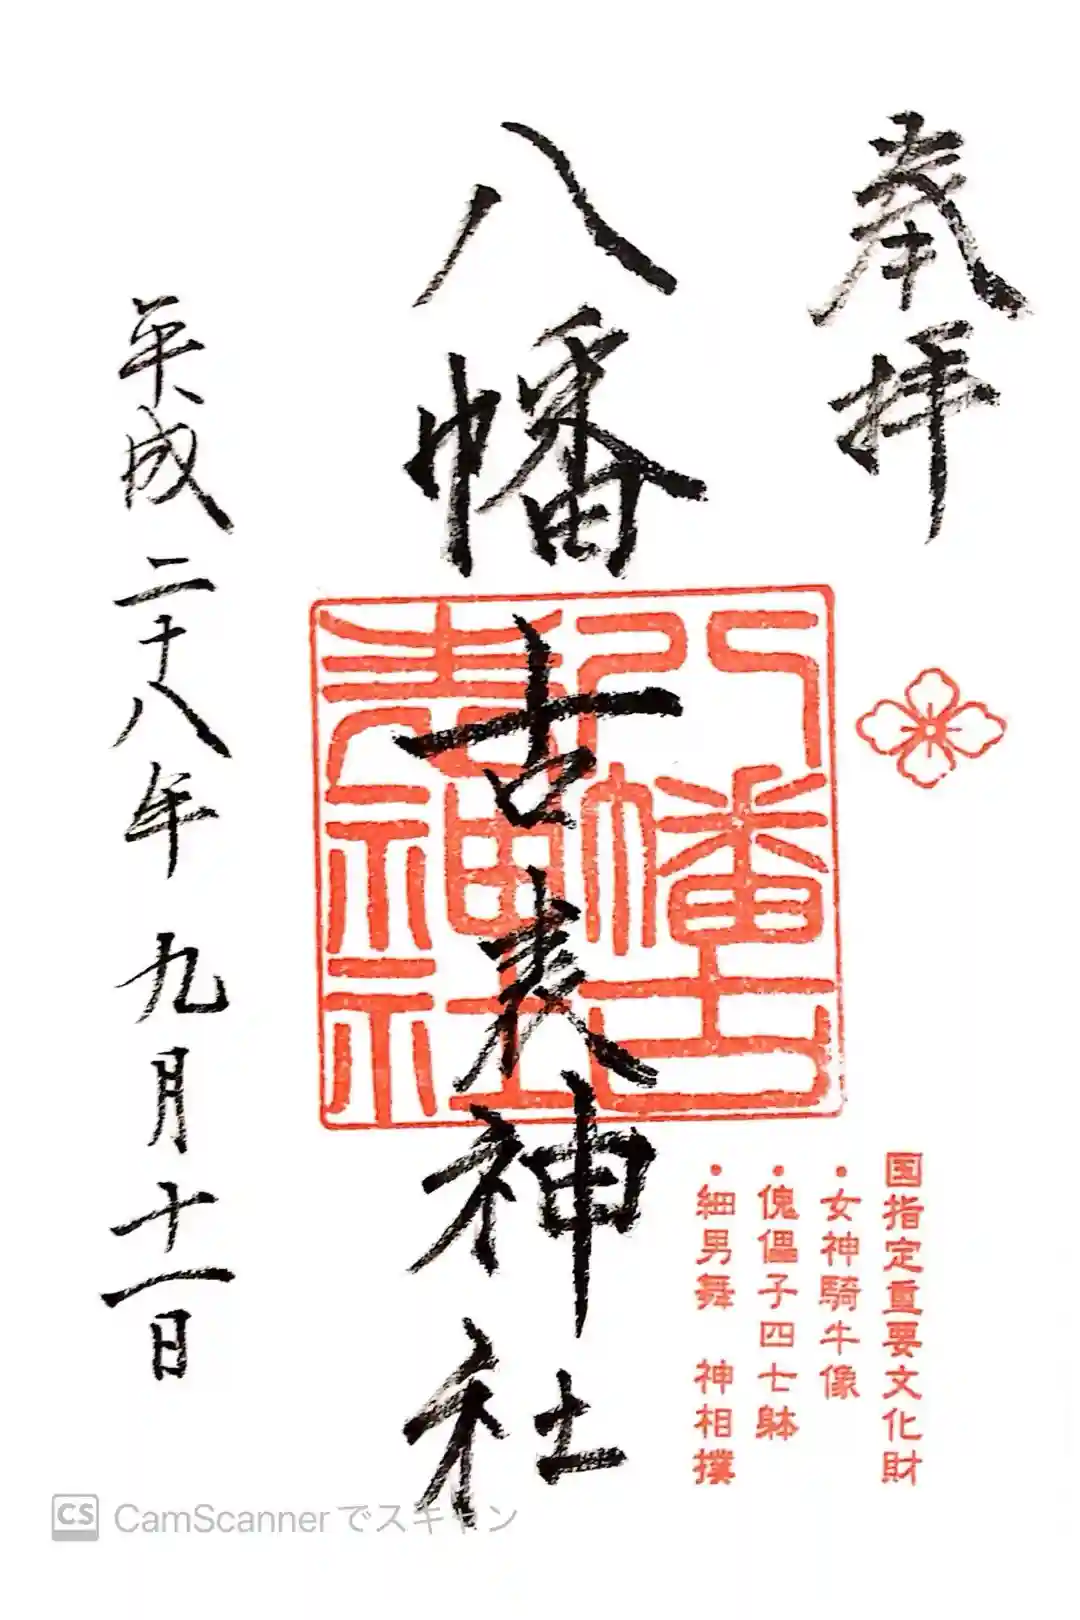 奉拝
八幡古表神社
八幡古
表神社
国指定重要文化財
・女神騎牛像
・傀儡子四七躰
・細男舞　神相撲
平成二十八年九月十一日
CS CamScannerでスキャン